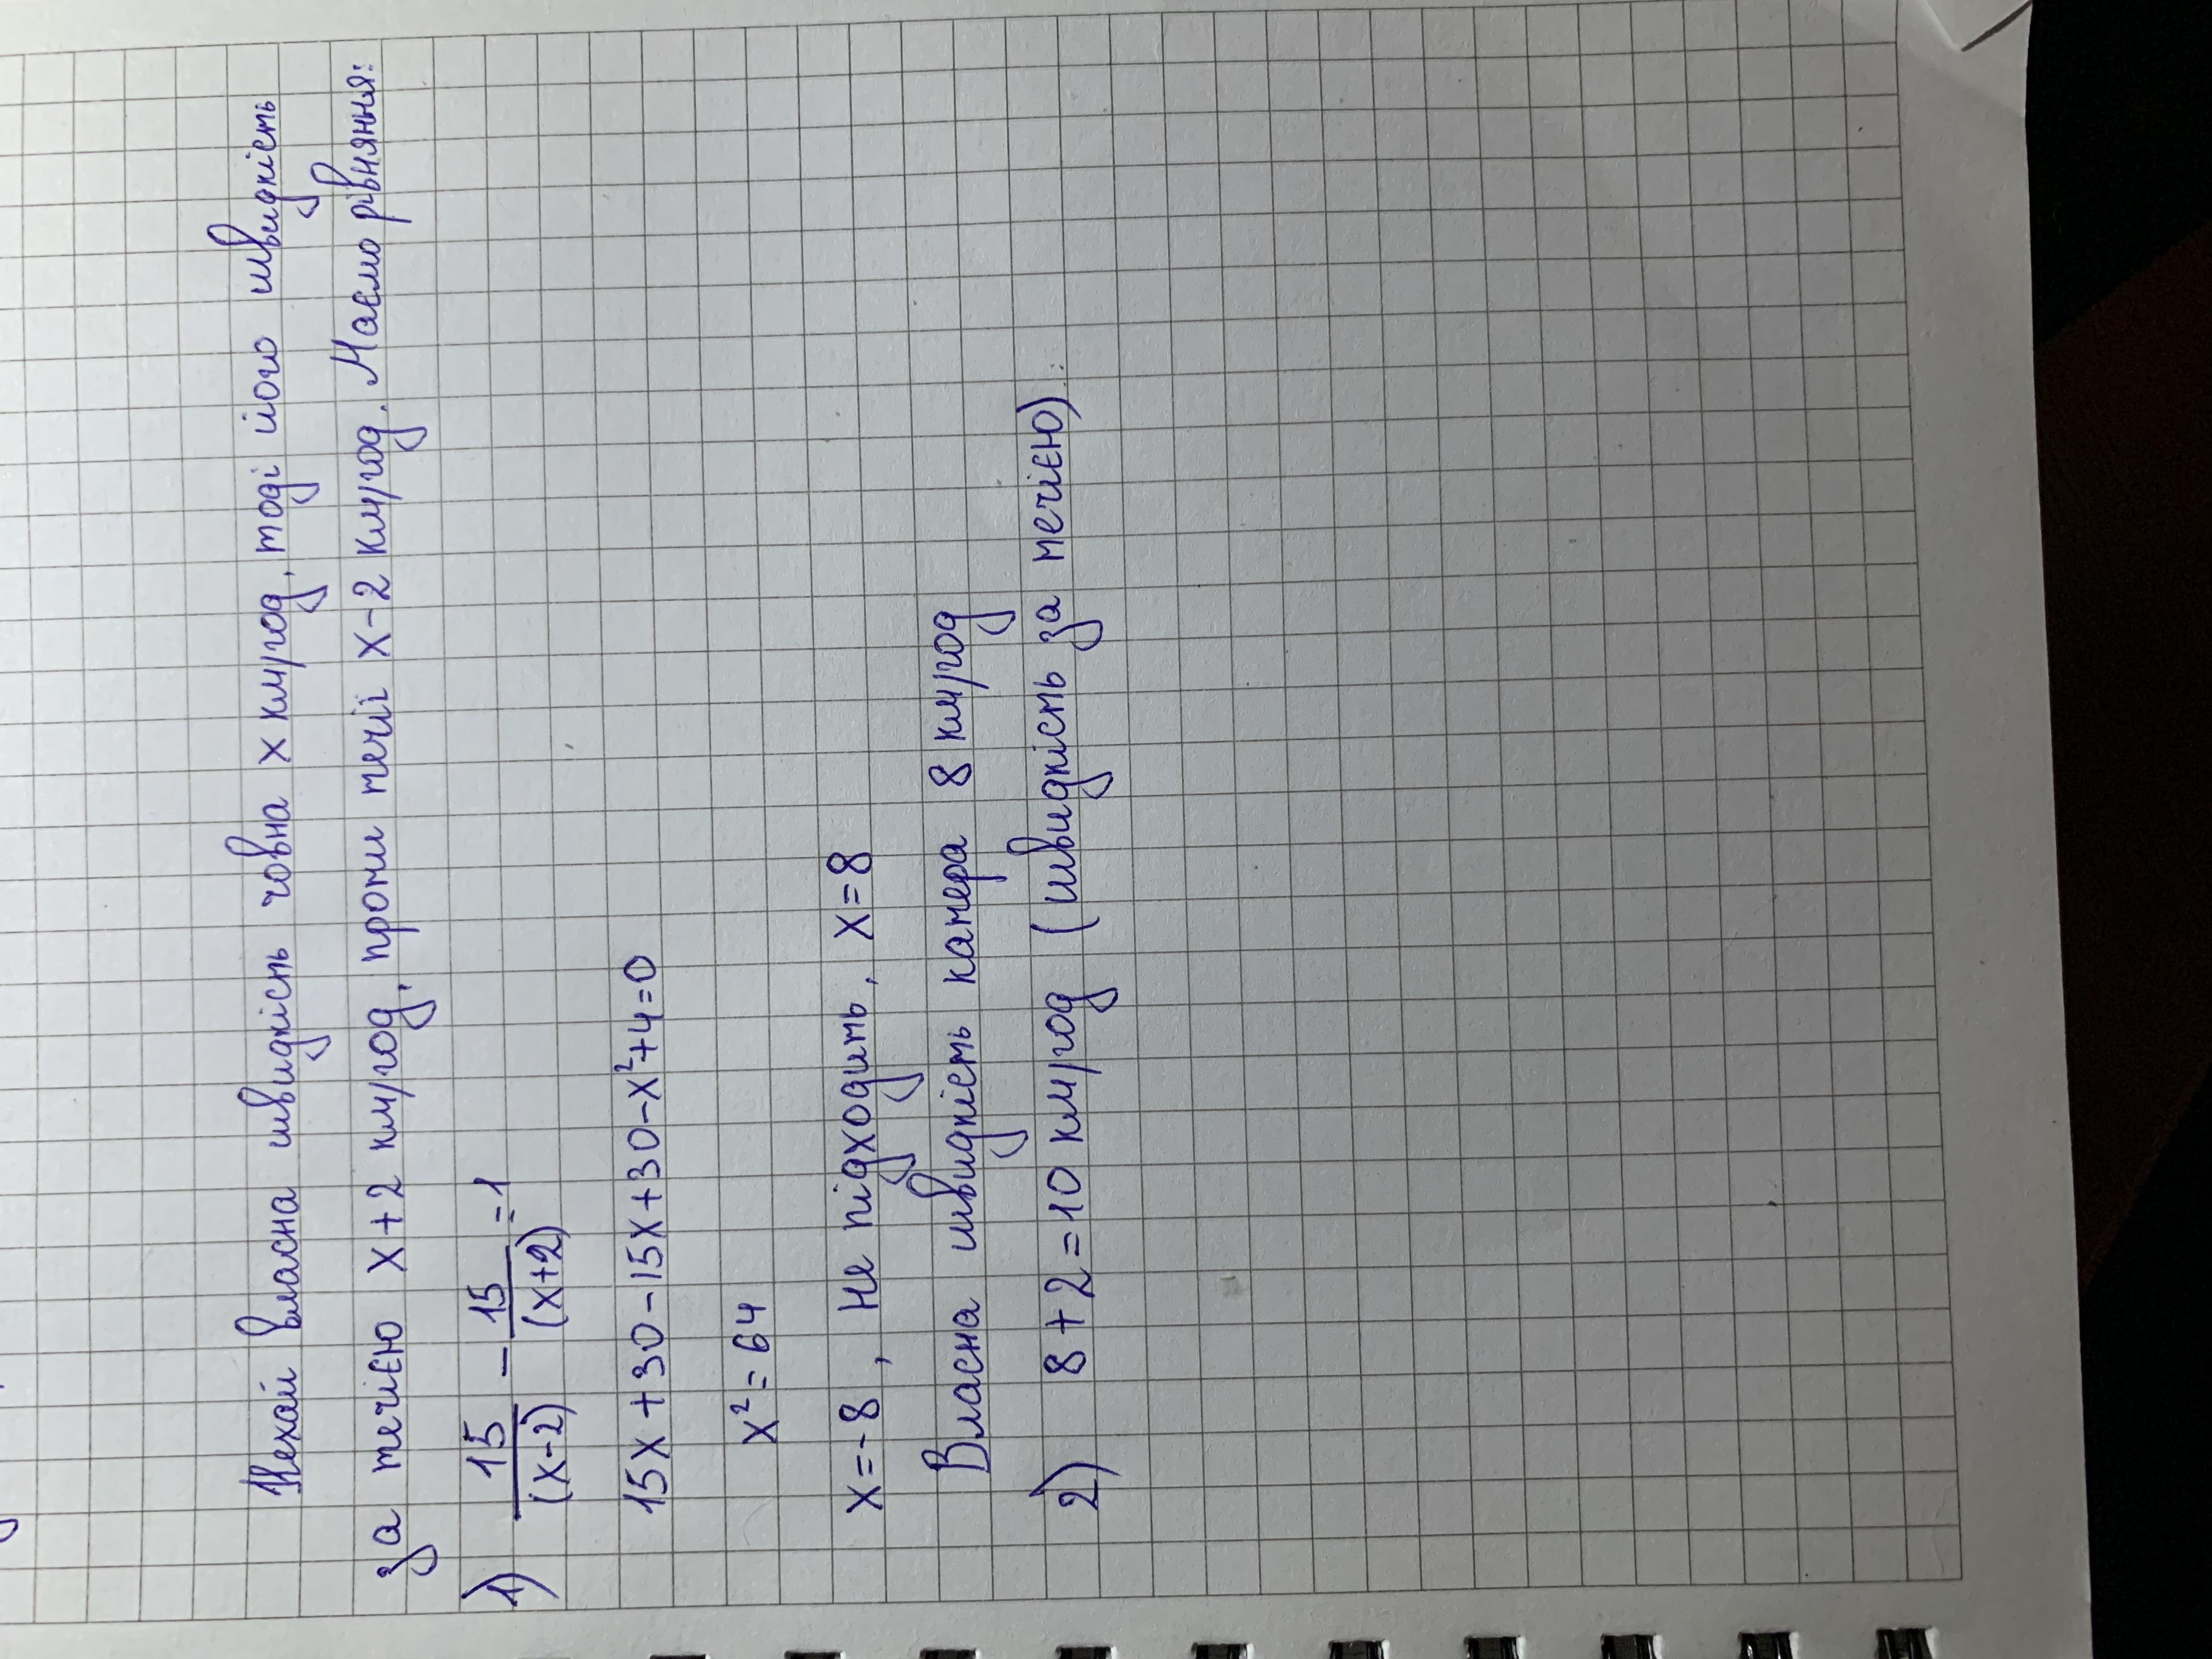 Нехай власна швидкість човна x км/год, тоді його швидкість
за течією x+2 км/год, проти течії x-2 км/год. Маємо рівняння:
1) 15/(x-2) - 15/(x+2) = 1
15x+30-15x+30-x²+4=0
x²=64
x=-8, не підходить, x=8
Власна швидкість катера 8 км/год
2) 8+2=10 км/год (швидкість за течією).